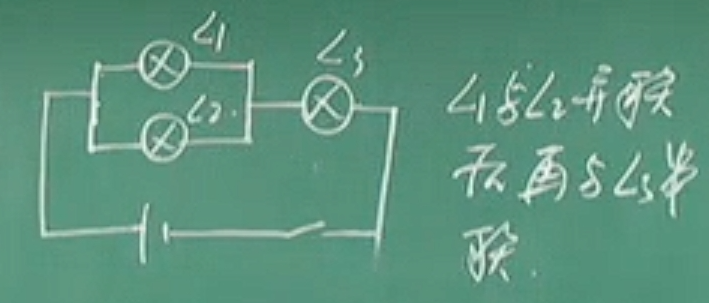 L₁
L₂
L₃
L₁与L₂并联
后再与L₃串
联.